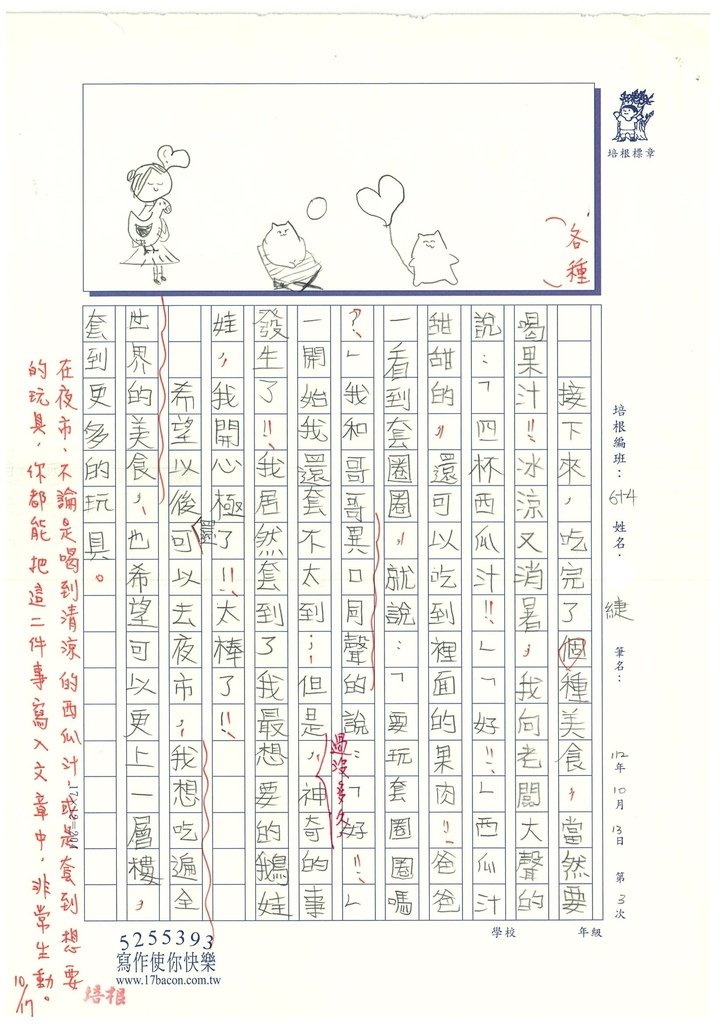 培根標章
各種
培根編班：
6+4
姓名：
緁
筆名：
112年10月13日
第3次
接下來，吃完了個種美食，當然要
喝果汁！冰涼又消暑，我向老闆大聲的
說：「四杯西瓜汁！」「好！」西瓜汁
甜甜的，還可以吃到裡面的果肉！爸爸
一看到套圈圈，就說：「要玩套圈圈嗎
？」我和哥哥異口同聲的說：「好！」
一開始我還套不太到；但是，神奇的事
過沒多久
發生了！我居然套到了我最想要的鵝娃
娃，我開心極了！太棒了！
希望以後可以去夜市，我想吃遍全
還
世界的美食，也希望可以更上一層樓，
套到更多的玩具。
在夜市，不論是喝到清涼的西瓜汁，或是套到想要
的玩具，你都能把這二件事寫入文章中，非常生動。
10/17
學校
年級
5255393
寫作使你快樂
www.17bacon.com.tw
培根